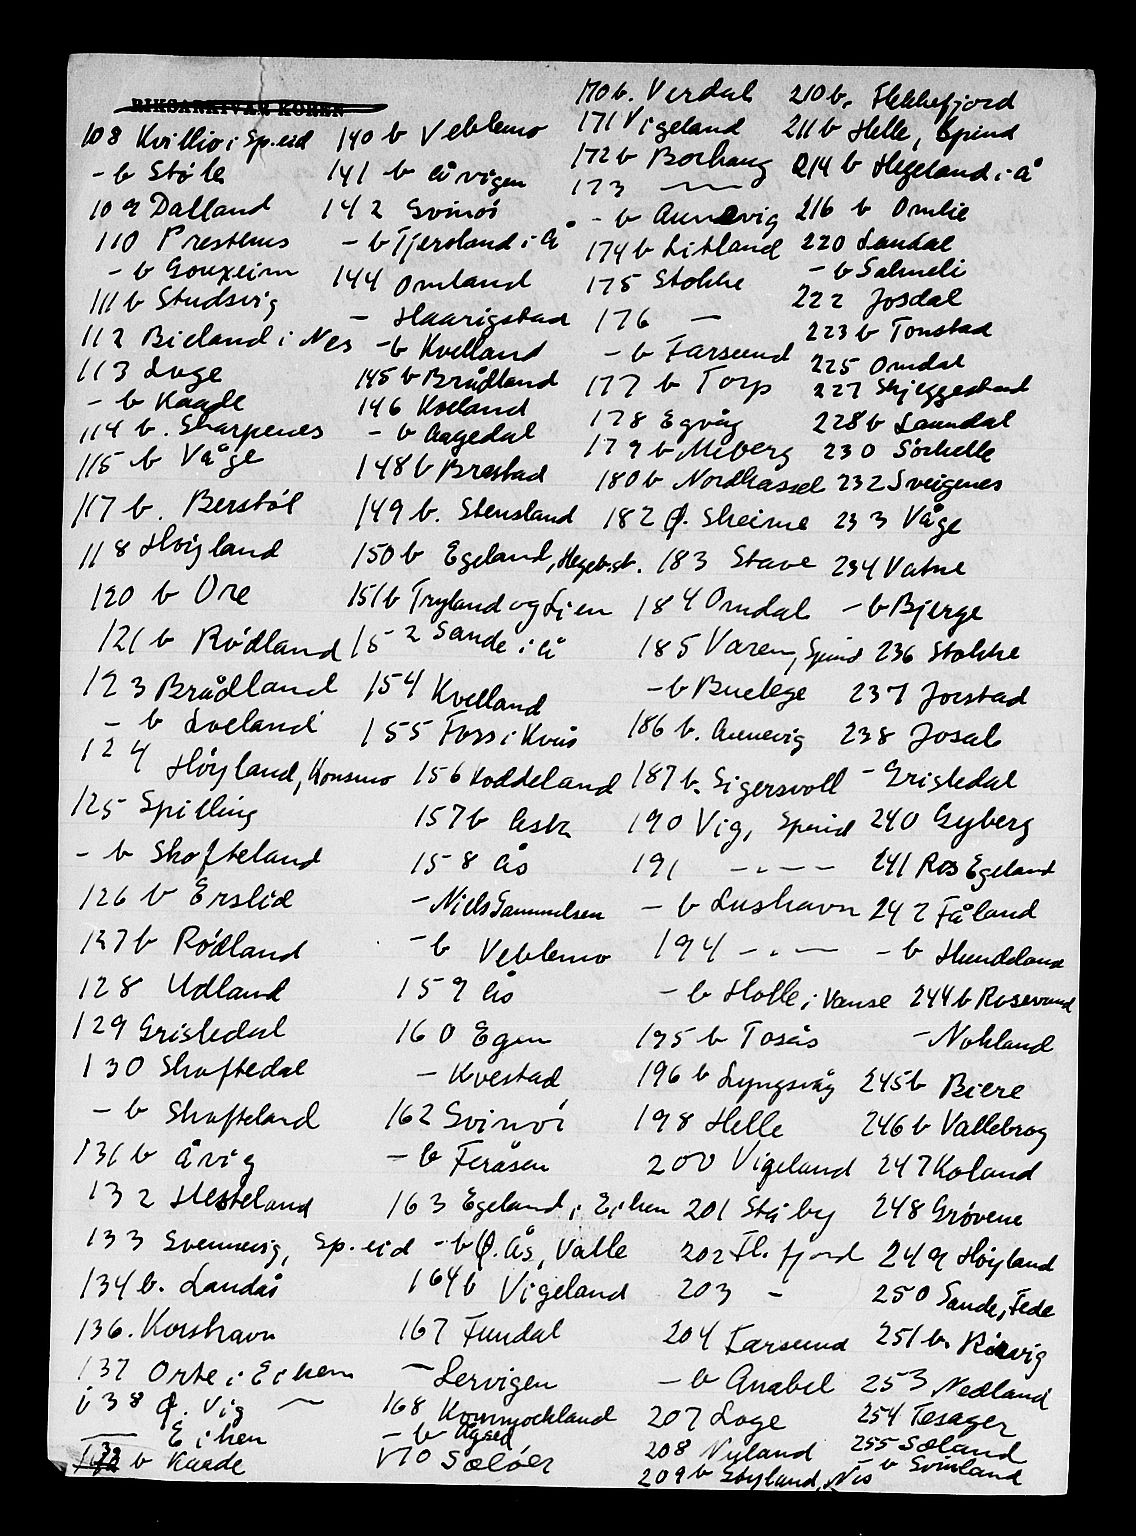 RIKSARKIVAR KOREN
108 Kvillio i Sp.eid
- b Støle
109 Dalland
110 Prestenes
- b
111 b Studsvig
112 Bieland i Nes
113 Loge
- b Kaade
114 b. Skarpenes
115 b Våge
117 b. Berstøl
118 Høiyland
120 b Ore
121 b Rødland
123 Brådland
- b Loeland
124 Høyland, Konsmo
125 Spilling
- b Skofteland
126 b Erslid
127 b Rødland
128 Udland
129 Grisledal
130 Skoftedal
- b Skofteland
131 b Åvig
132 Hesteland
133 Svennevig, Sp.eid
134 b. Landås
136. Korshavn
137 Orte i Eiken
138 Ø. Vig
— Eiken
139 b Kaade
140 b Veblemo
141 b Åvigen
142 Svinøi
- b Tjersland i Å
144 Omland
- Haarigstad
- b Kvelland
145 b Brådland
146 Koeland
- b Aagedal
148 b Brestad
149 b. Stensland
150 b Egeland, Hegebst.
151 b Tryland og Lien
152 Sande i Å
154 Kvelland
155 Foss i Kvås
156 Koddeland
157 b Ask
158 Ås
- Niels Samuelsen
- b Veblemo
159 Ås
160 Egen
- Kvestad
162 Svinøi
- b Feråsen
163 Egeland i Eiken
- b Ø. Ås, Valle
164 b Vigeland
167 Fundal
— Lervigen
168
- b Ågsed
170 Sæløer
170 b. Verdal
171 Vigeland
172 b Borhaug
173 —
- b Aunevig
174 b Litland
175 Stokke
176 —
- b Farsund
177 b Torp
178 Egvåg
179 b Meberg
180 b Nordhassel
182 Ø. Skeime
183 Stave
184 Omdal
185 Varen, Spind
- b Buelege
186 b. Aunevig
187 b. Sigersvoll
190 Vig, Spind
191 -.-—
- b Lushavn
194 -.-—
- b Holle i Vanse
195 b Tosås
196 b Lyngsvåg
198 Helle
200 Vigeland
201 Stå by
202 Fl. fjord
203 -
204 Farsund
- b Anabel
207 Loge
208 Nyland
209 b Støyland, Nes
210 b. Flekkefjord
211 b Helle, Spind
214 b Hegeland i Å
216 b Omlie
220 Laudal
- b Salmeli
222 Josdal
223 b Tonstad
225 Omdal
227 Skjeggestad
228 b Laundal
230 Sørhelle
232 Sveigenes
233 Våge
234 Vatne
- b Bjerge
236 Stokke
237 Jorstad
238 Josal
- Grisledal
240 Gyberg
241 Ros Egeland
242 Fåland
- b Hundeland
244 b Rosevand
- Nokland
245 b Biere
246 b Vallebrog
247 Koland
248 Grøvene
249 Høiyland
250 Sande, Fede
251 b. Rørvig
253 Nedland
254 Tesager
255 Sæland
- b Svinland